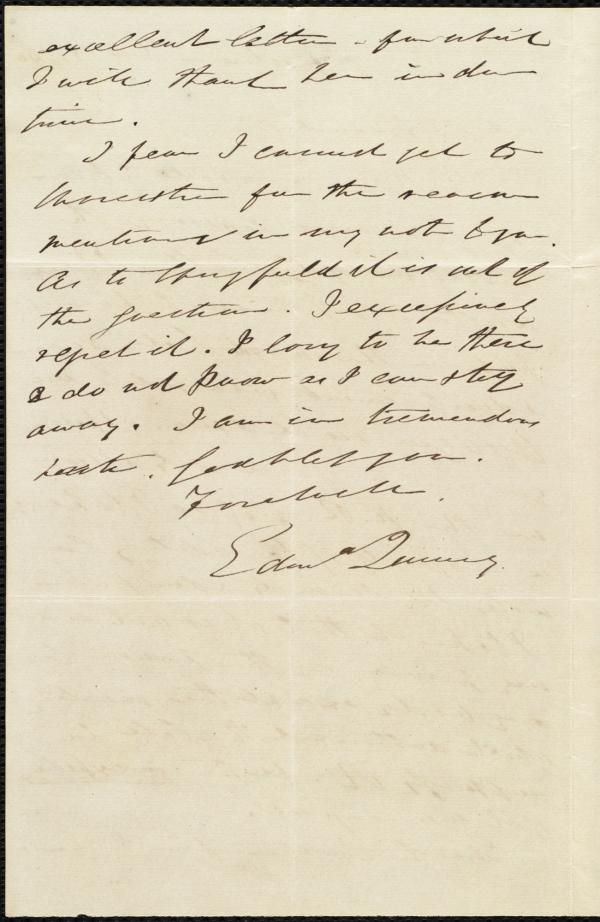 excellent letter - for which
I will thank her in due
time.
I fear I cannot get to
Worcester for the reason
mentioned in my note to you.
As to Springfield it is out of
the question. I excessively
regret it. I long to be there
& do not know as I can stay
away. I am in tremendous
haste. God bless you.
Farewell.
Edmd Quincy